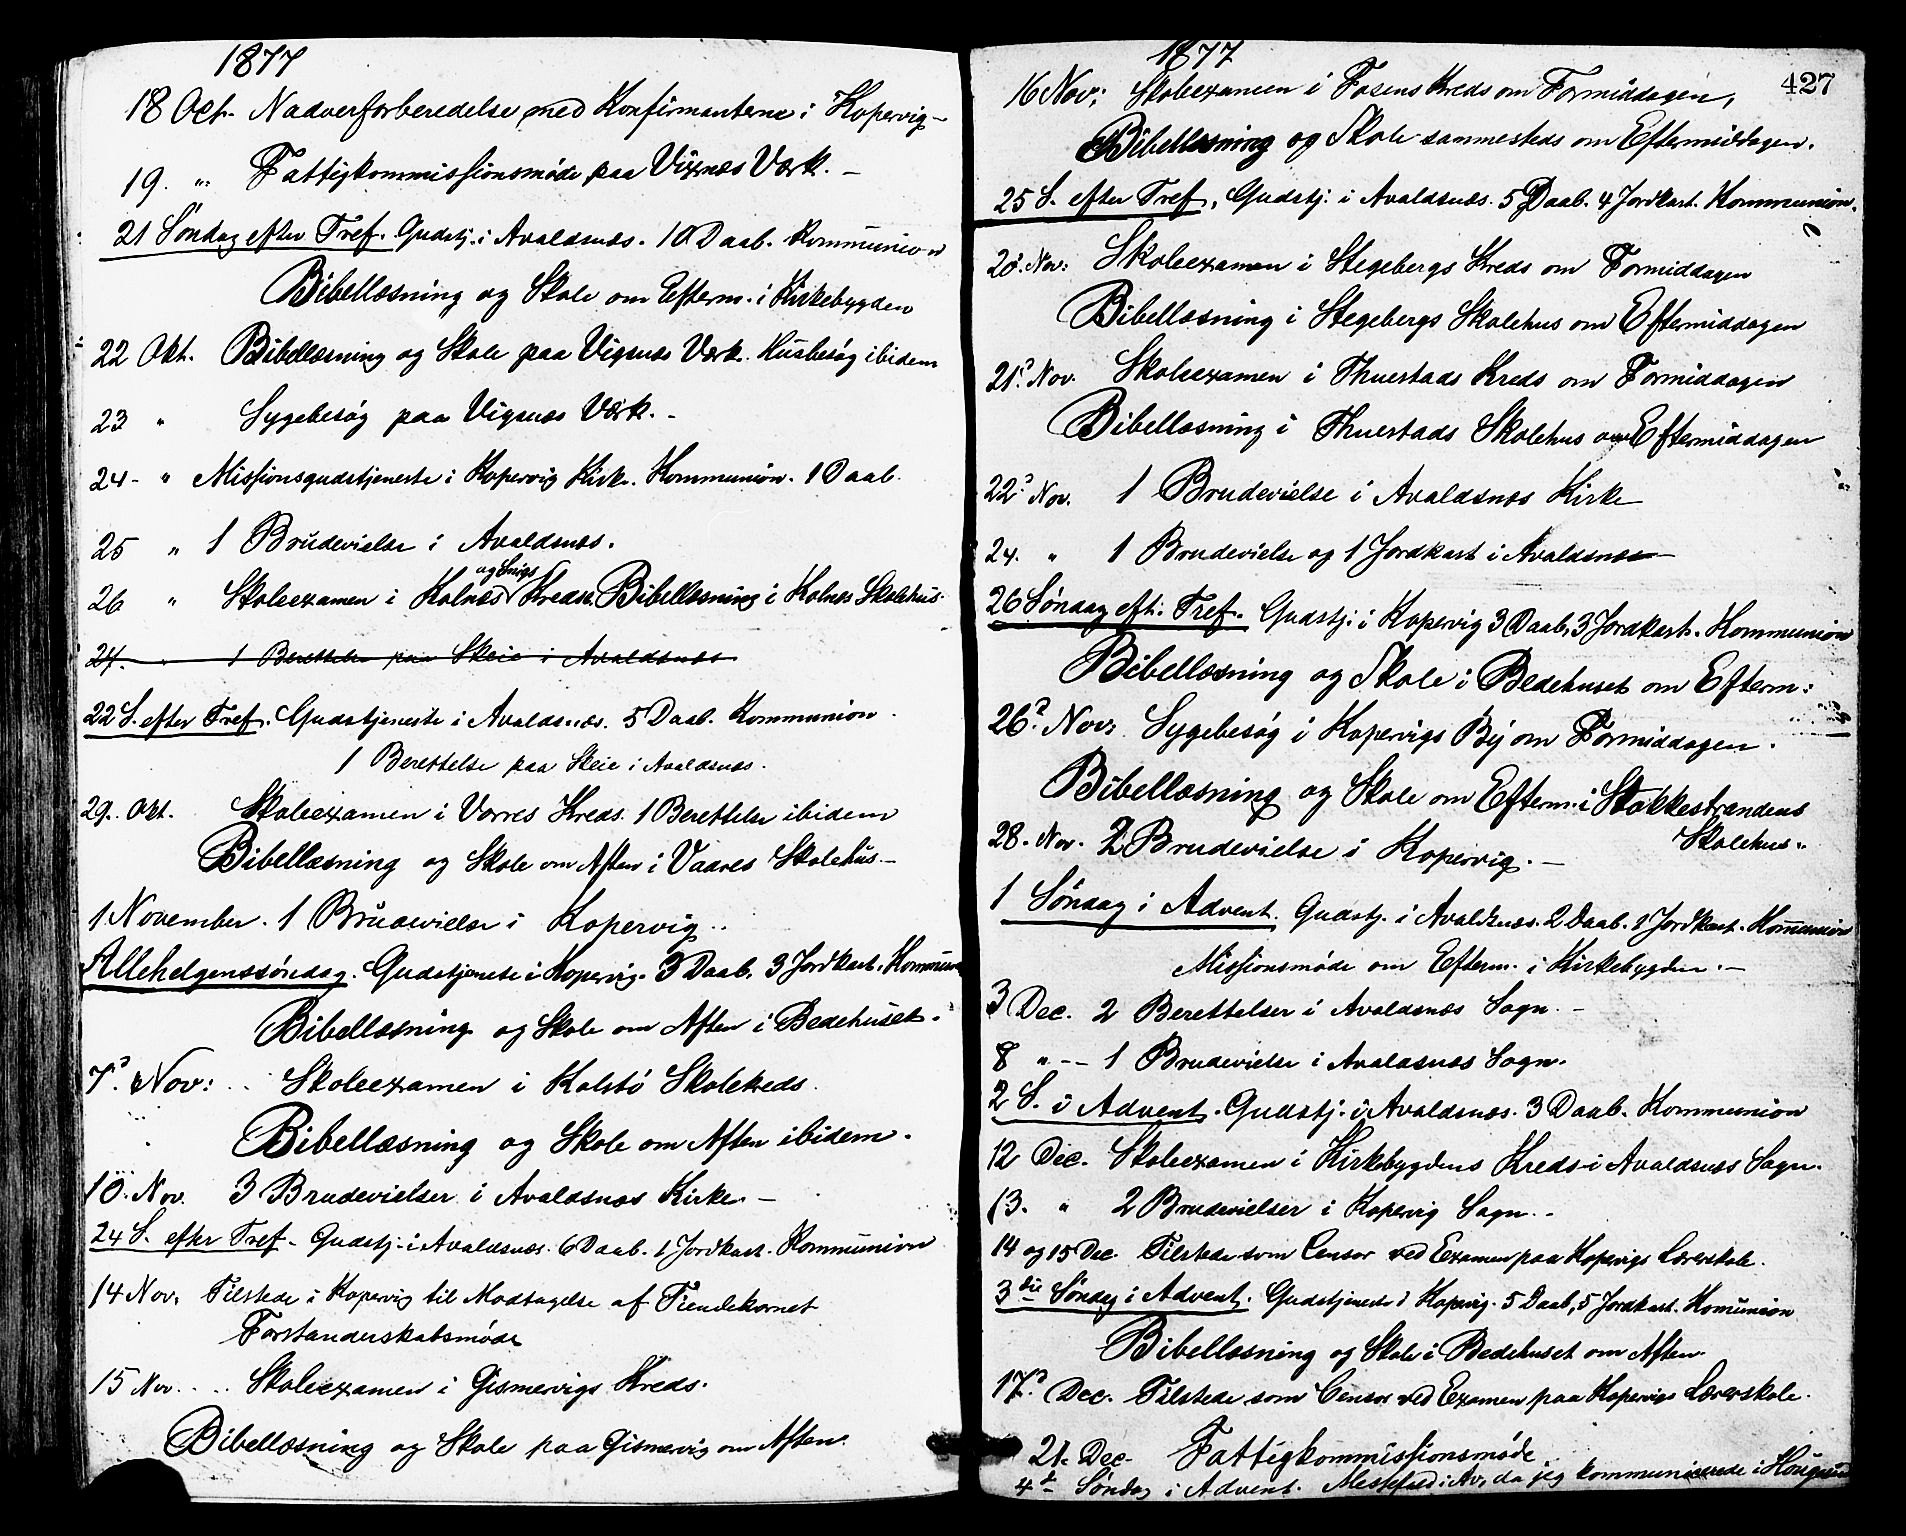 1877
18 Oct. Nadverforberedelse med Konfirmanterne i Kopervig –
19. " Fattigkommissionsmøde paa Vixnæs Værk. –
21 Søndag efter Tref. Gudstj. i Avaldsnæs. 10 Daab. Kommunion
Bibellæsning og Skole om Efterm. i Kirkebygden
22 Okt. Bibellæsning og Skole paa Vigsnæs Værk. Husbesøg ibidem
23 " Sygebesøg paa Vigsnæs Værk. –
24 - " Missionsgudstjeneste i Kopervig Kirk. Kommunion. 1 Daab.
25 " 1 Brudevielse i Avaldsnæs.
og Snigs
26 " Skoleexamen i Kolnæs Kredse, Bibellæsning i Kolnæs Skolehus.
27. " 1 Berettelse paa Skeie i Avaldsnæs
22 S. efter Tref. Gudstjeneste i Avaldsnæs. 5 Daab. Kommunion.
1 Berettelse paa Skeie i Avaldsnæs.
29. Okt. Skoleexamen i Vorres Kreds. 1 Berettelse ibidem
Bibellæsning og Skole om Aften i Vaares Skolehus. –
1 November. 1 Brudevielse i Kopervig..
Allehelgenssøndag. Gudstjeneste i Kopervig. 3 Daab. 3 Jordkast. Kommun
Bibellæsning og Skole om Aften i Bedehuset.
7. Nov: .. Skoleexamen i Kolstø Skolekreds.
Bibellæsning og Skole om Aften ibidem.
10. Nov. 3 Brudevielser i Avaldsnæs Kirke. –
24 S. efter Tref. Gudstj. i Avaldsnæs. 6 Daab. 1 Jordkast. Kommunion
14 Nov. Tilstede i Kopervig til Modtagelse af Tiendekornet
Forstanderskabsmøde
15 Nov. ... Skoleexamen i Gismervigs Kreds.
Bibellæsning og Skole paa Gismervig om Aften.
1877
427
16 Nov: Skoleexamen i Fosens Kreds om Formiddagen,
Bibellæsning og Skole sammesteds om Eftermiddagen.
25 S. efter Tref. Gudstj. i Avaldsnæs. 5 Daab. 4 Jordkast. Kommunion.
20. Nov: Skoleexamen i Stegebergs Kreds om Formiddagen
Bibellæsning i Stegebergs Skolehus om Eftermiddagen
21. Nov. Skoleexamen i Thuestads Kreds om Formiddagen
Bibellæsning i Thuestads Skolehus om Eftermiddagen
22. Nov. 1 Brudevielse i Avaldsnæs Kirke
24. " 1 Brudevielse og 1 Jordkast i Avaldsnæs
26 Søndag eft. Tref. Gudstj. i Kopervig 3 Daab, 3 Jordkast. Kommunion
Bibellæsning og Skole i Bedehuset om Efterm:
26. Nov: Sygebesøg i Kopervigs By om Formiddagen.
Bibellæsning og Skole om Efterm. i Stokkestrandens
Skolehus.
28. Nov. 2 Brudevielse i Kopervig. –
1 Søndag i Advent. Gudstj. i Avaldsnæs. 2 Daab. 1 Jordkast. Kommunion
Missionsmøde om Efterm. i Kirkebygden. –
3 Dec. 2 Berettelser i Avaldsnæs Sogn. –
8 " -- 1 Brudevielse i Avaldsnæs Sogn.
2 S. i Advent. Gudstj. i Avaldsnæs. 3 Daab. Kommunion
12 Dec. Skoleexamen i Kirkebygdens Kreds i Avaldsnæs Sogn.
13. " 2 Brudevielser i Kopervig Sogn. -
14 og 15 Dec. Tilstede som Censor ved Examen paa Kopervigs Lærerskole.
3die Søndag i Advent. Gudstjeneste i Kopervig. 5 Daab, 5 Jordkast. Komunion
Bibellæsning og Skole i Bedehuset om Aften.
17. Dec. Tilstede som Censor ved Examen paa Kopervigs Lærerskole.
21. Dec. Fattigkommissionsmøde
4de Søndag i Advent. Messefald i Av, da jeg kommunicerede i Haugesund